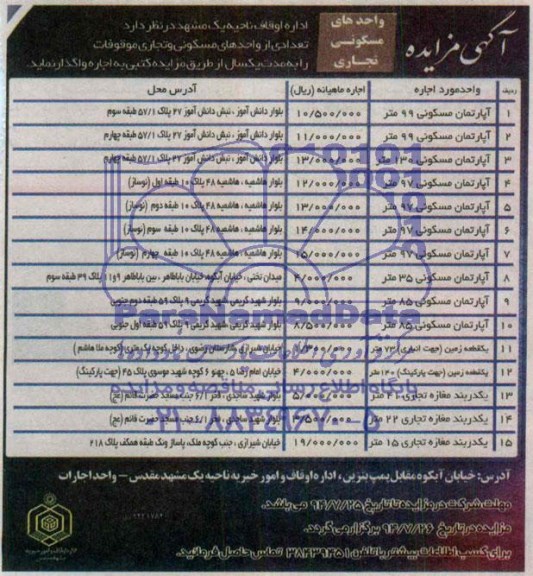 آگهی مزایده
واحدهای
مسکونی
تجاری
اداره اوقاف ناحیه یک مشهد در نظر دارد
تعدادی از واحدهای مسکونی و تجاری موقوفات
را به مدت یکسال از طریق مزایده کتبی به اجاره واگذار نماید.
ردیف واحد مورد اجاره اجاره ماهیانه (ریال) آدرس محل
۱ آپارتمان مسکونی ۹۹ متر ۱۰/۵۰۰/۰۰۰ بلوار دانش آموز ، نبش دانش آموز ۲۷ پلاک ۵۷/۱ طبقه سوم
۲ آپارتمان مسکونی ۹۹ متر ۱۱/۰۰۰/۰۰۰ بلوار دانش آموز ، نبش دانش آموز ۲۷ پلاک ۵۷/۱ طبقه چهارم
۳ آپارتمان مسکونی ۱۳۰ متر ۱۳/۰۰۰/۰۰۰ بلوار دانش آموز ، نبش دانش آموز ۲۷ پلاک ۵۷/۱ طبقه چهارم
۴ آپارتمان مسکونی ۹۷ متر ۱۲/۰۰۰/۰۰۰ بلوار هاشمیه ، هاشمیه ۴۸ پلاک ۱۰ طبقه اول (نوساز)
۵ آپارتمان مسکونی ۹۷ متر ۱۳/۰۰۰/۰۰۰ بلوار هاشمیه ، هاشمیه ۴۸ پلاک ۱۰ طبقه دوم (نوساز)
۶ آپارتمان مسکونی ۹۷ متر ۱۴/۰۰۰/۰۰۰ بلوار هاشمیه ، هاشمیه ۴۸ پلاک ۱۰ طبقه سوم (نوساز)
۷ آپارتمان مسکونی ۹۷ متر ۱۵/۰۰۰/۰۰۰ بلوار هاشمیه ، هاشمیه ۴۸ پلاک ۱۰ طبقه چهارم (نوساز)
۸ آپارتمان مسکونی ۳۵ متر ۴/۰۰۰/۰۰۰ میدان تختی ، خیابان آبکوه، خیابان باباطاهر ، بین باباطاهر ۹ و ۱۱ پلاک ۳۹ طبقه سوم
۹ آپارتمان مسکونی ۸۵ متر ۹/۰۰۰/۰۰۰ بلوار شهید کریمی، شهید کریمی ۹ پلاک ۵۹ طبقه دوم جنوبی
۱۰ آپارتمان مسکونی ۸۵ متر ۸/۵۰۰/۰۰۰ بلوار شهید کریمی، شهید کریمی ۹ پلاک ۵۹ طبقه اول جنوبی
۱۱ یکقطعه زمین (جهت انباری) ۷۳ متر /۳۰۰/۰۰۰ خیابان شیرازی، داخل کوچه (کوچه ملا هاشم)
۱۲ یکقطعه زمین (جهت پارکینگ) ۱۲۰ متر ۴/۰۰۰/۰۰۰ خیابان امام رضا ۵ ، چهنو ۶ کوچه شهید موسوی پلاک ۴۵ (جهت پارکینگ)
۱۳ یکدربند مغازه تجاری ۲۱ متر ۵/۰۰۰/۰۰۰ بلوار شهید ساجدی ، فجر ۶/۱ جنب مسجد حضرت قائم (عج)
۱۴ یکدربند مغازه تجاری ۲۲ متر ۳/۵۰۰/۰۰۰ بلوار شهید ساجدی ، فجر ۶/۱ جنب مسجد حضرت قائم (عج)
۱۵ یکدربند مغازه تجاری ۱۵ متر ۱۹/۰۰۰/۰۰۰ خیابان شیرازی ، جنب کوچه ملک، پاساژ ونک طبقه همکف پلاک ۲۱۸
ParsNamadData
پایگاه اطلاع رسانی مناقصه و مزایده
آدرس: خیابان آبکوه مقابل پمپ بنزین ، اداره اوقاف و امور خیریه ناحیه یک مشهد مقدس – واحد اجارات
مهلت شرکت در مزایده تا تاریخ ۹۴/۷/۲۵ می باشد.
مزایده در تاریخ ۹۴/۷/۲۶ برگزار می گردد.
برای کسب اطلاعات بیشتر با تلفن ۳۸۴۳۹۴۵۱ تماس حاصل فرمائید.